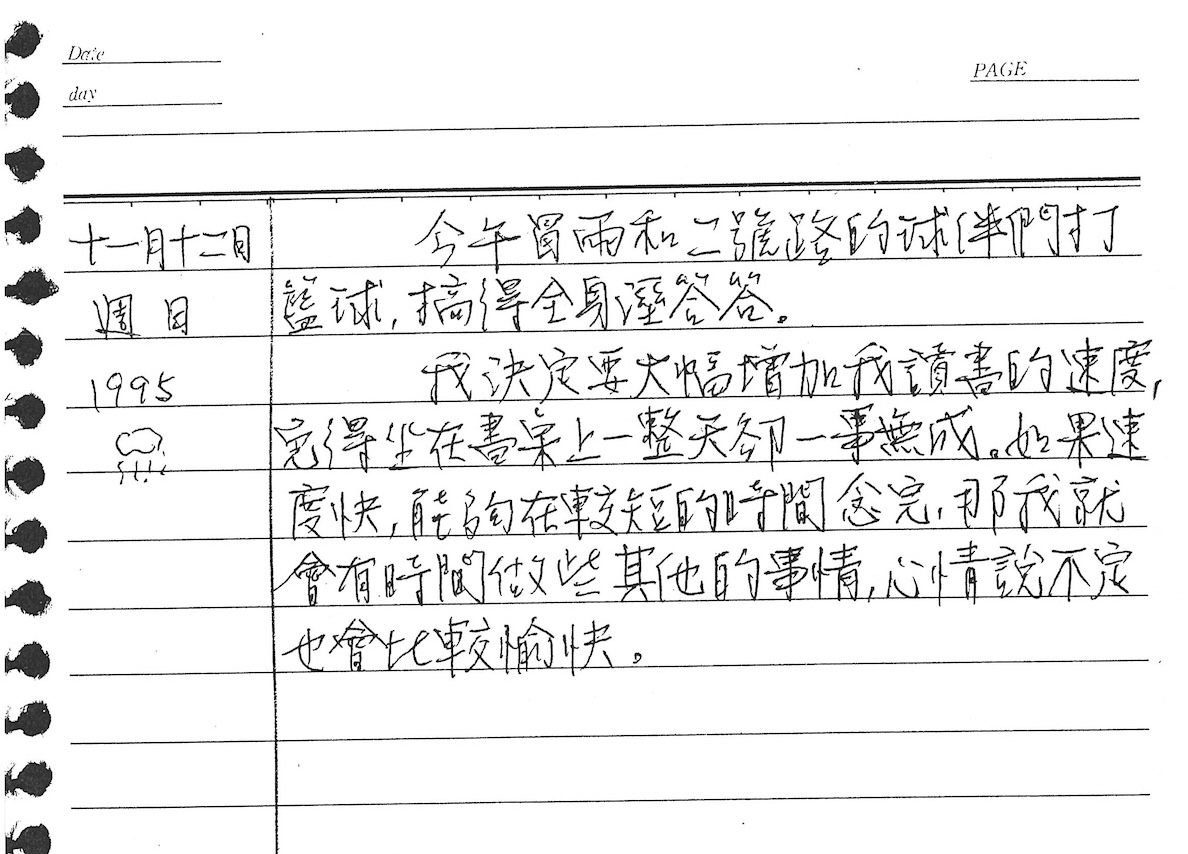 Date
day
PAGE
十一月十二日
週日
1995
今午冒雨和二號路的球伴們打
籃球,搞得全身溼答答。
我決定要大幅增加我讀書的速度,
免得坐在書桌上一整天卻一事無成。如果速
度快,能夠在較短的時間念完,那我就
會有時間做些其他的事情,心情說不定
也會比較愉快。